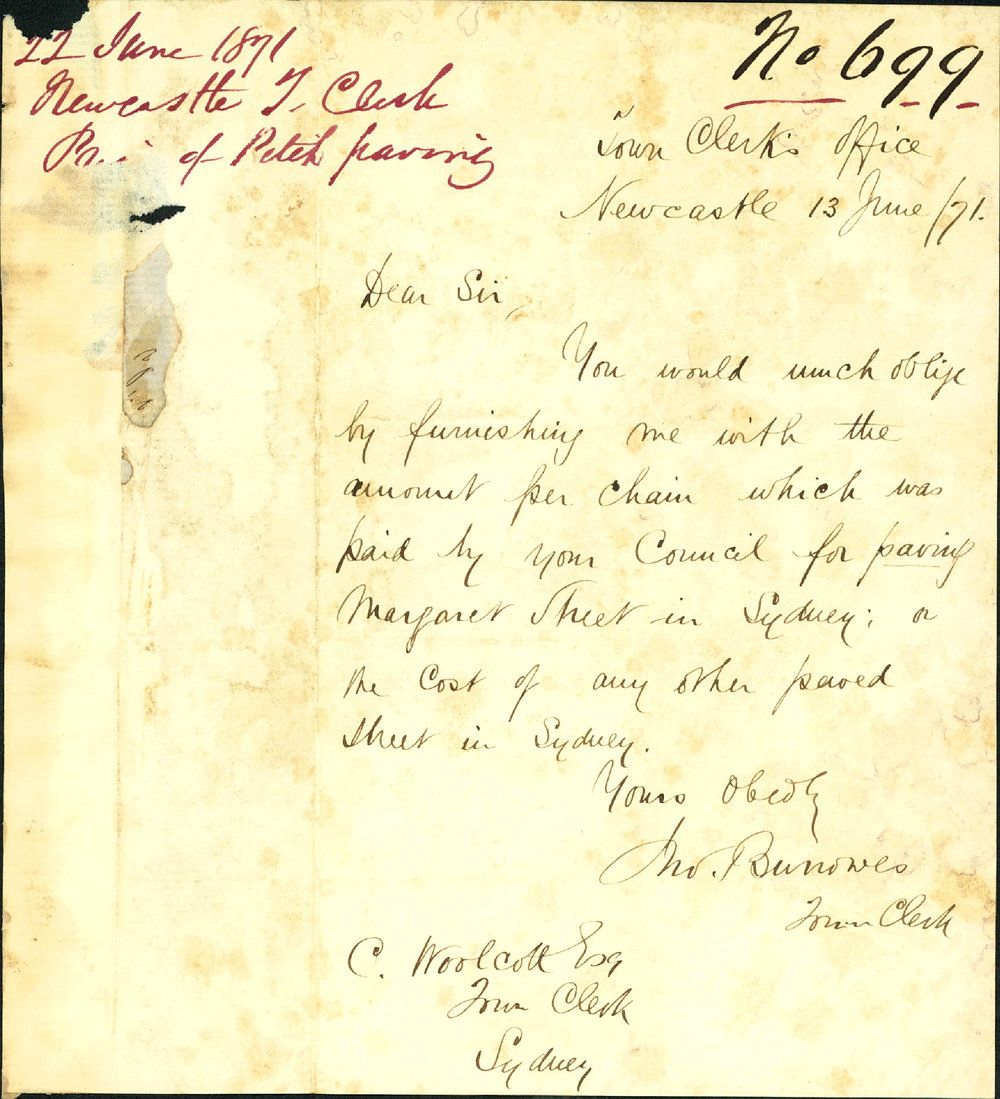 22 June 1871
Newcastle T. Clerk
of Pitch paving
No 699
Town Clerk's Office
Newcastle 13 June /71.
Dear Sir,
You would much oblige
by furnishing me with the
amount per chain which was
paid by your Council for paving
Margaret Street in Sydney; or
the cost of any other paved
street in Sydney.
Yours Obedly
Jno. Burrowes
Town Clerk
C. Woolcott Esq
Town Clerk
Sydney